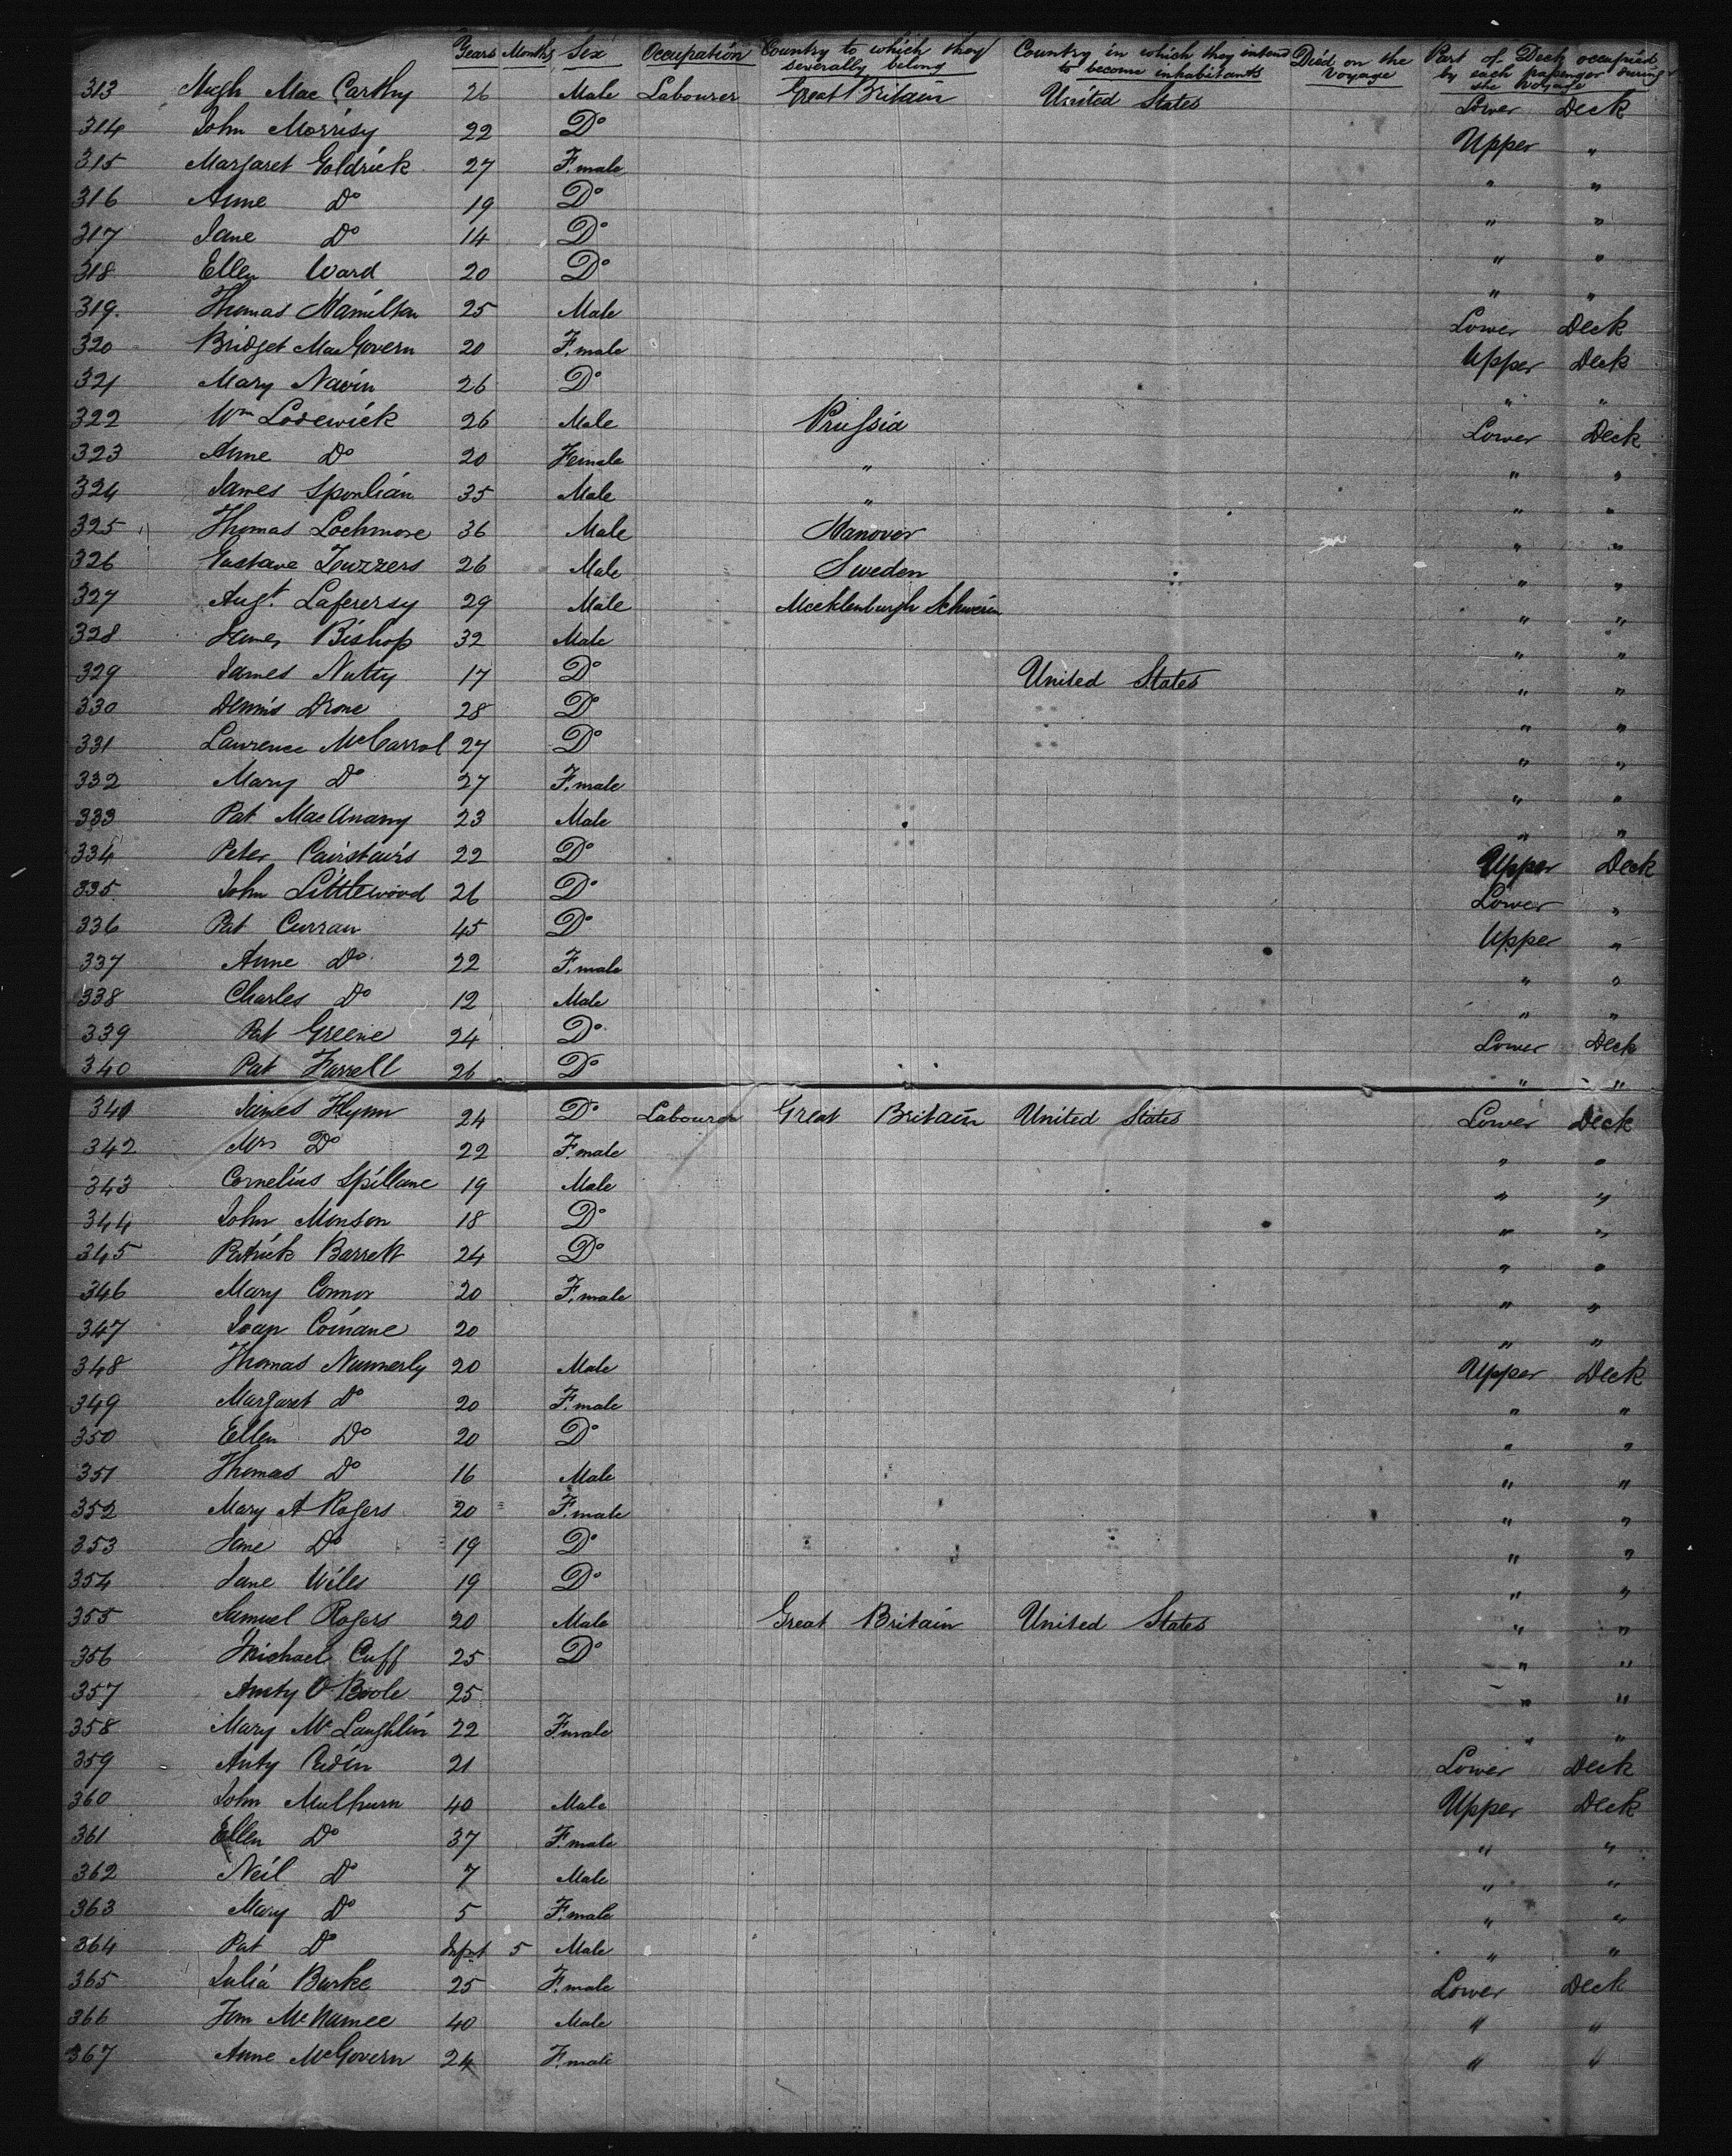 Years Months Sex Occupation Country to which they severally belong Country in which they intend to become inhabitants Died on the Voyage Part of Deck occupied by each passenger during the voyage
313 Hugh Mac Carthy 26 Male Labourer Great Britain United States Lower Deck
314 John Morrisy 22 Do Upper "
315 Margaret Goldrick 27 F.male " "
316 Anne Do 19 Do " "
317 Jane Do 14 Do " "
318 Ellen Ward 20 Do " "
319. Thomas Hamilton 25 Male Lower Deck
320 Bridget MacGovern 20 F.male Upper Deck
321 Mary Navin 26 Do " "
322 Wm Lodewick 26 Male Prussia Lower Deck
323 Anne Do 20 Female " " "
324 James Sponlian 35 Male " " "
325 Thomas Lochmore 36 Male Hanover " "
326 Gustave 26 Male Sweden " "
327 Augt. Laferersy 29 Male Mecklenburgh Schwerin " "
328 James Bishop 32 Male " "
329 James Nutty 17 Do United States " "
330 Dennis Drone 28 Do " "
331 Lawrence McCarrol 27 Do " "
332 Mary Do 27 F.male " "
333 Pat MacAnany 23 Male " "
334 Peter Cairstairs 22 Do Upper Deck
335. John Littlewood 26 Do Lower "
336 Pat Curran 45 Do Upper "
337 Anne Do 22 F.male " "
338 Charles Do 12 Male " "
339 Pat Greene 24 Do Lower Deck
340 Pat Farrell 26 Do " "
341 James Flynn 24 Do Labourer Great Britain United States Lower Deck
342 Mrs Do 22 F.male " "
343 Cornelius Spillane 19 Male " "
344 John Monson 18 Do " "
345 Patrick Barrett 24 Do " "
346 Mary Connor 20 F.male " "
347 Joan Coinane 20 " "
348 Thomas Nunnerly 20 Male Upper Deck
349 Margaret Do 20 F.male " "
350 Ellen Do 20 Do " "
351 Thomas Do 16 Male " "
352 Mary A Rogers 20 F.male " "
353 Jane Do 19 Do " "
354 Jane Wiles 19 Do " "
355 Samuel Rogers 20 Male Great Britain United States " "
356 Michael Cuff 25 Do " "
357 Austy O Boole 25 " "
358 Mary McLaughlin 22 Female " "
359 Anty 21 Lower Deck
360 John Mulhurn 40 Male Upper Deck
361 Ellen Do 37 F.male " "
362 Neil Do 7 Male " "
363 Mary Do 5 F.male " "
364 Pat Do Infnt 5 Male " "
365 Julia Burke 25 F.male Lower Deck
366 Jam McNamee 40 Male " "
367 Anne McGovern 24 F.male " "